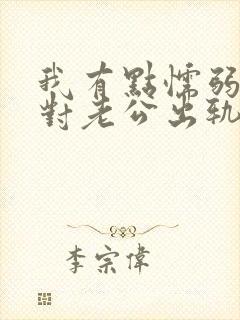 我有點懦弱
對老公出軌
李宗偉